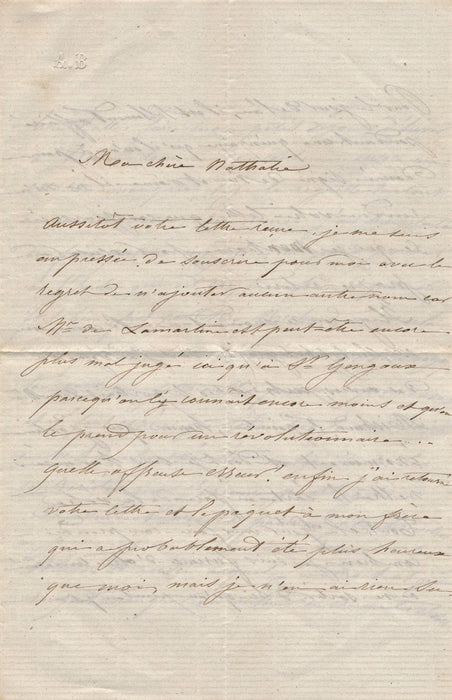 A.B
Ma chère Nathalie
Aussitôt votre lettre reçue, je me suis
empressée de souscrire pour moi avec le
regret de n'ajouter aucun autre nom car
Mr de Lamartine est peut-être encore
plus mal jugé ici qu'à St Gengoux
parcequ'on l'y connait encore moins et qu'on
le prend pour un révolutionnaire...
quelle affreuse erreur! enfin j'ai retourné
votre lettre et le paquet à mon frère
qui a probablement été plus heureux
que moi, mais je n'en ai rien su